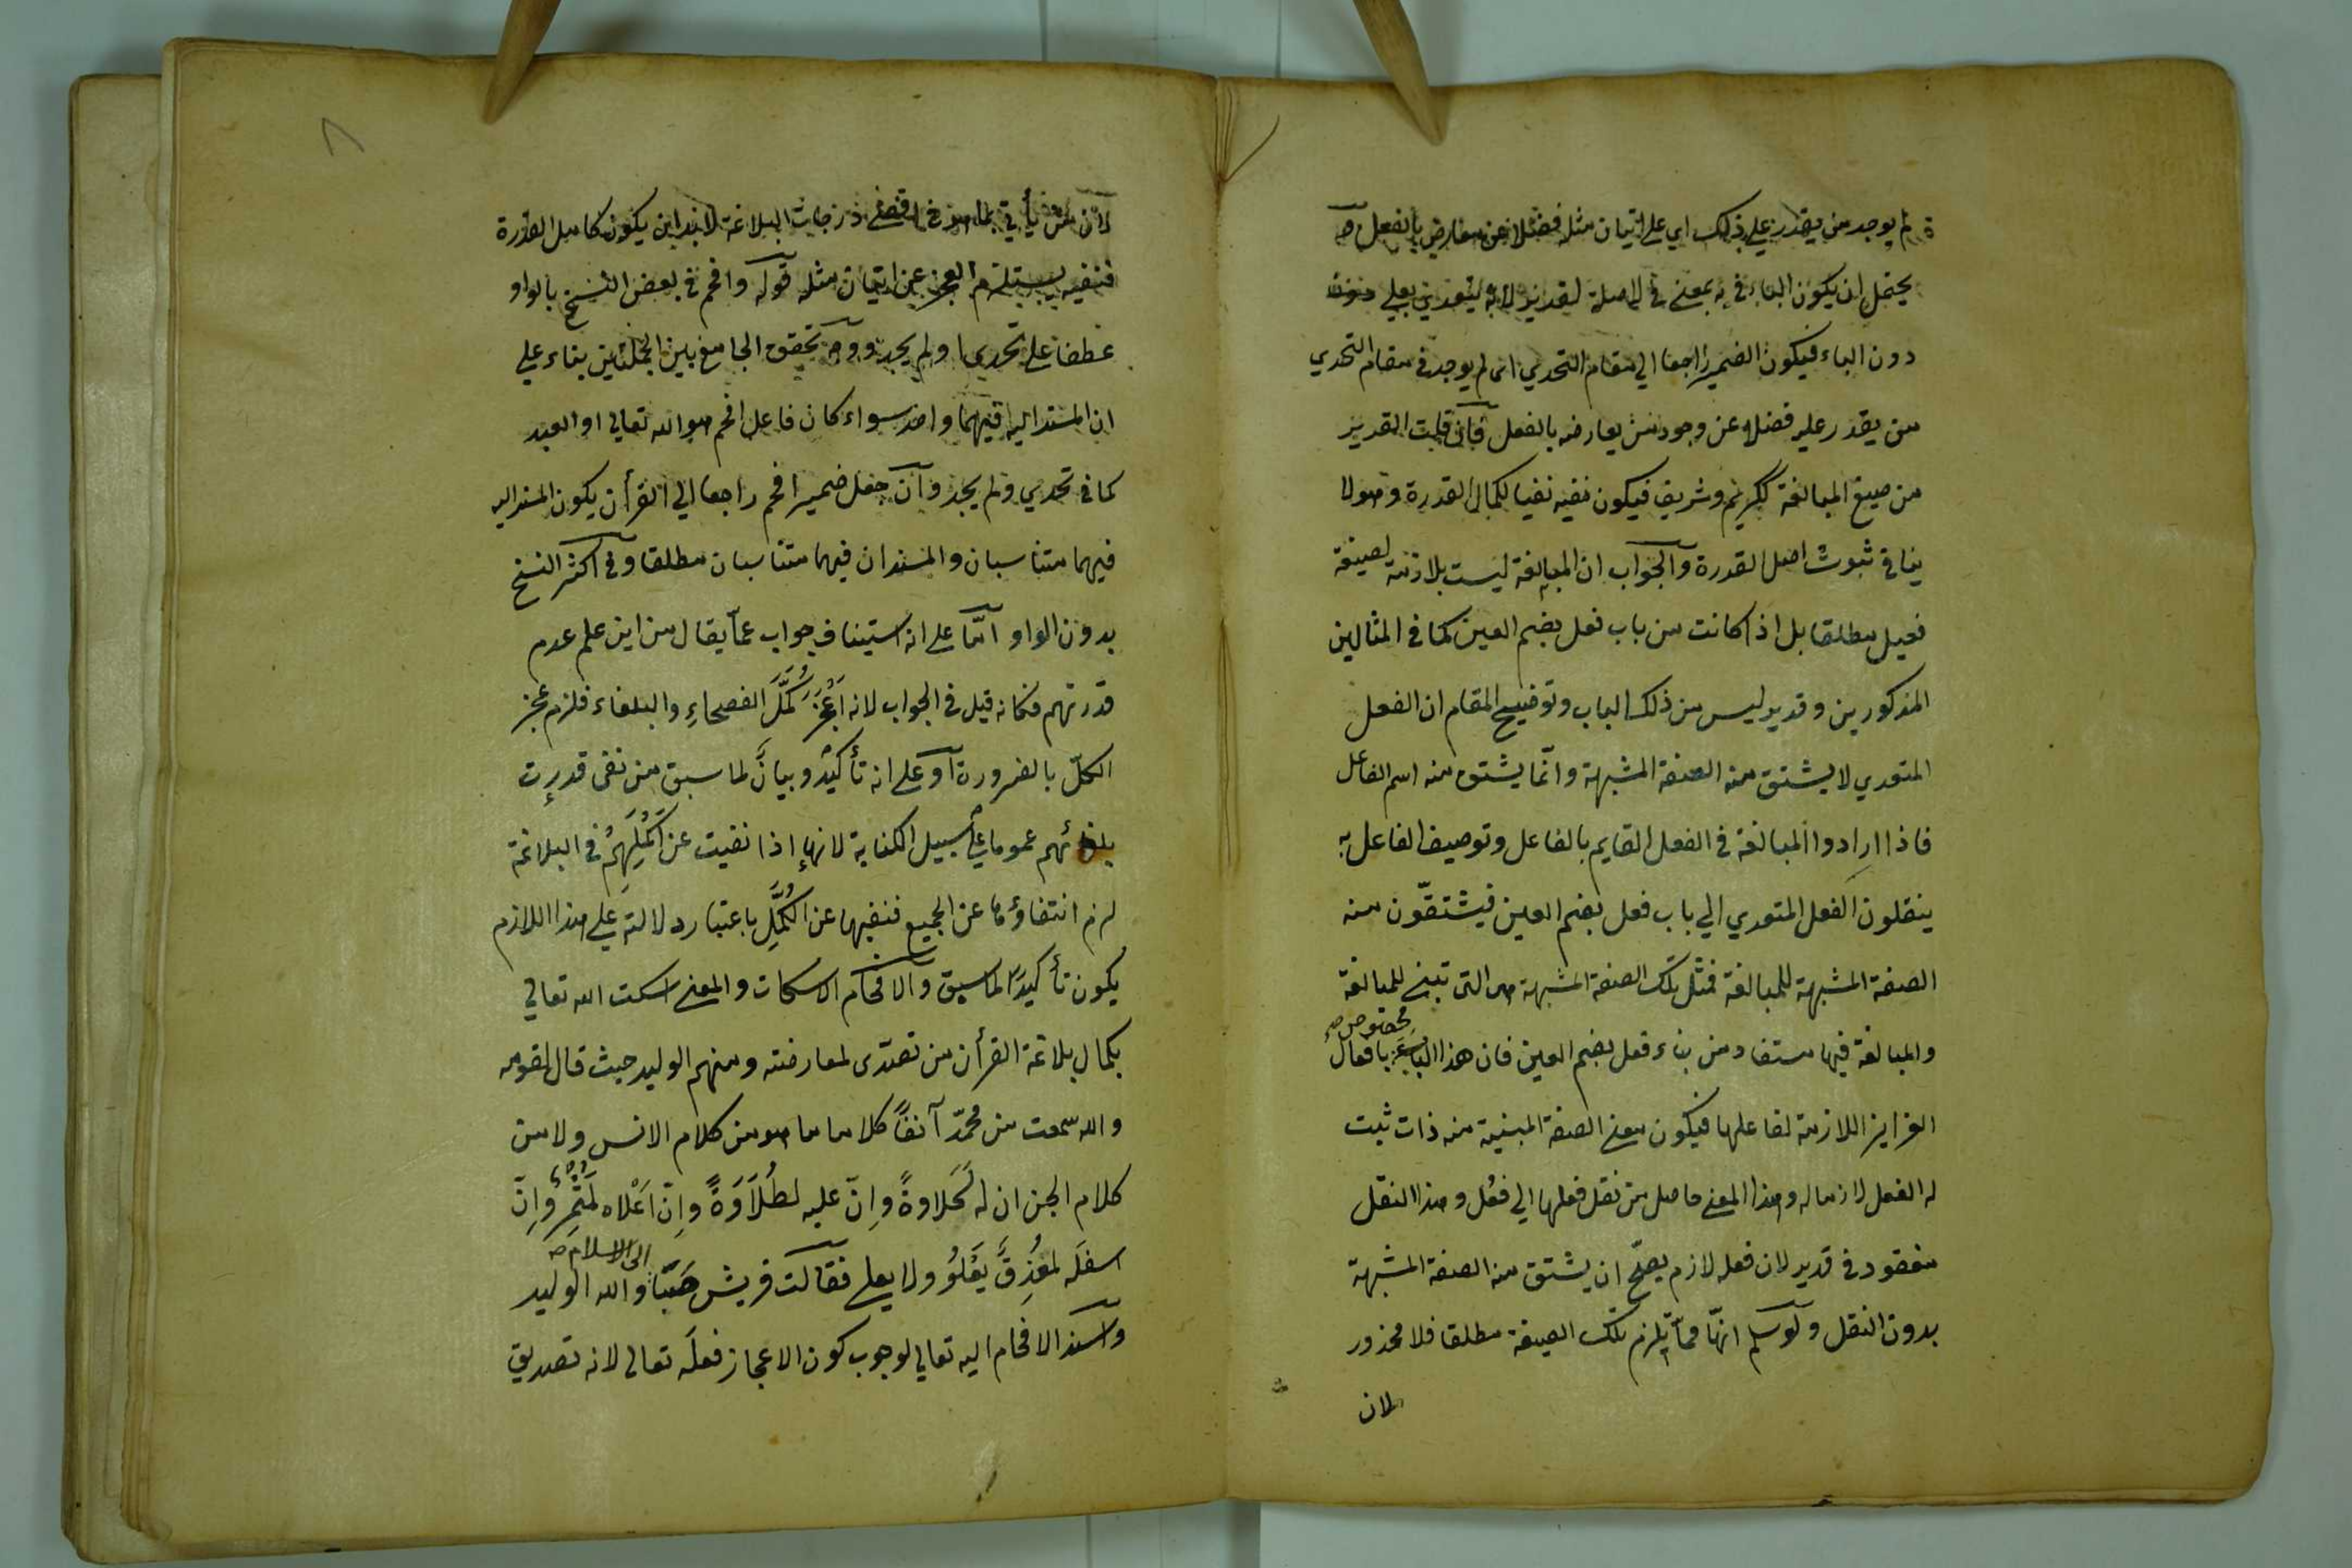 لم يوجد من يقدر على ذلك اي على اتيان مثله فضلا عن معارض بالفعل
يحتمل ان يكون الباء في به بمعنى في لا صلة لقدير لانه يتعدي بعلي
دون الباء فيكون الضمير راجعا الي مقام التحدي اي لم يوجد في مقام التحدي
من يقدر عليه فضلا عن وجود من يعارضه بالفعل فان قلت القدير
من صيغ المبالغة ككريم وشريف فيكون نفيه نفيا لكمال القدرة وهو لا
ينافي ثبوت اصل القدرة والجواب ان المبالغة ليست بلازمة لصيغة
فعيل مطلقا بل اذا كانت من باب فعل بضم العين كما في المثالين
المذكورين وقدير ليس من ذلك الباب وتوضيح المقام ان الفعل
المتعدي لا يشتق منه الصفة المشبهة وانما يشتق منه اسم الفاعل
فاذا ارادوا المبالغة في الفعل القايم بالفاعل وتوصيف الفاعل به
ينقلون الفعل المتعدي الي باب فعل بضم العين فيشتقّون منه
الصفة المشبهة للمبالغة فمثل تلك الصفة المشبهة هي التي تبني للمبالغة
والمبالغة فيها مستفاد من بناء فعل بضم العين فان هذا الباب مخصوص بافعال
الغرايز اللازمة لفاعلها فيكون معنى الصفة المبنية منه ذات ثبت
له الفعل لازما له وهذا المعنى حاصل من نقل فعلها الي فعُل وهذا النقل
مفقود في قدير لان فعله لازم يصحّ ان يشتق منه الصفة المشبهة
بدون النقل ولو سلم انها مما يلزم تلك الصيغة مطلقا فلا محذور
لان
٨
لان من يأتي بما هو في اقصى درجات البلاغة لابد ان يكون كامل القدرة
فنفيه يستلزم العجز عن اتيان مثله قوله وافحم في بعض النسخ بالواو
عطفا على تحدي او لم يجد ووجه تحقق الجامع بين الجملتين بناء علي
ان المسند اليه فيهما واحد سواء كان فاعل افحم هو الله تعالي او العبد
كما في تحدي ولم يجد وان جعل ضمير افحم راجعا الي القرأن يكون المسند اليه
فيهما متناسبان والمسندان فيهما متناسبان مطلقا وفي اكثر النسخ
بدون الواو امّا على انه استيناف جواب عمّا يقال من اين علم عدم
قدرتهم فكانه قيل في الجواب لانه اَعْجَزَ كُمَّلَ الفصحاءِ والبلغاء فلزم عجز
الكلّ بالضرورة او على انه تأكيدٌ وبيانٌ لما سبق من نفي قدرت
بلغائهم عموما على سبيل الكناية لانها اذا نفيت عن اكملِهِمْ في البلاغة
لزم انتفاؤها عن الجميع فنفيها عن الكُمَّلِ باعتبار دلالته على هذا اللازم
يكون تأكيدًا لما سبق والافحام الاسكات والمعنى اسكت الله تعالي
بكمال بلاغة القرأن من تصدّى لمعارضته ومنهم الوليد حيث قال لقومه
والله سمعت من محمّد آنفًا كلاما ما هو من كلام الانس ولا من
كلام الجن ان له لَحَلاوةً وإنّ عليه لطُلاَوَةً وإنّ اَعْلاه لمثمِرٌ وإنّ
اسفلَه لمغْدِقٌ يَعْلُوْ ولا يعلي فقالت قريش صَبَّا والله الوليد الى الاسلام
واسند الافحام اليه تعالي لوجوب كون الاعجاز فعلَه تعالى لانه تصديق